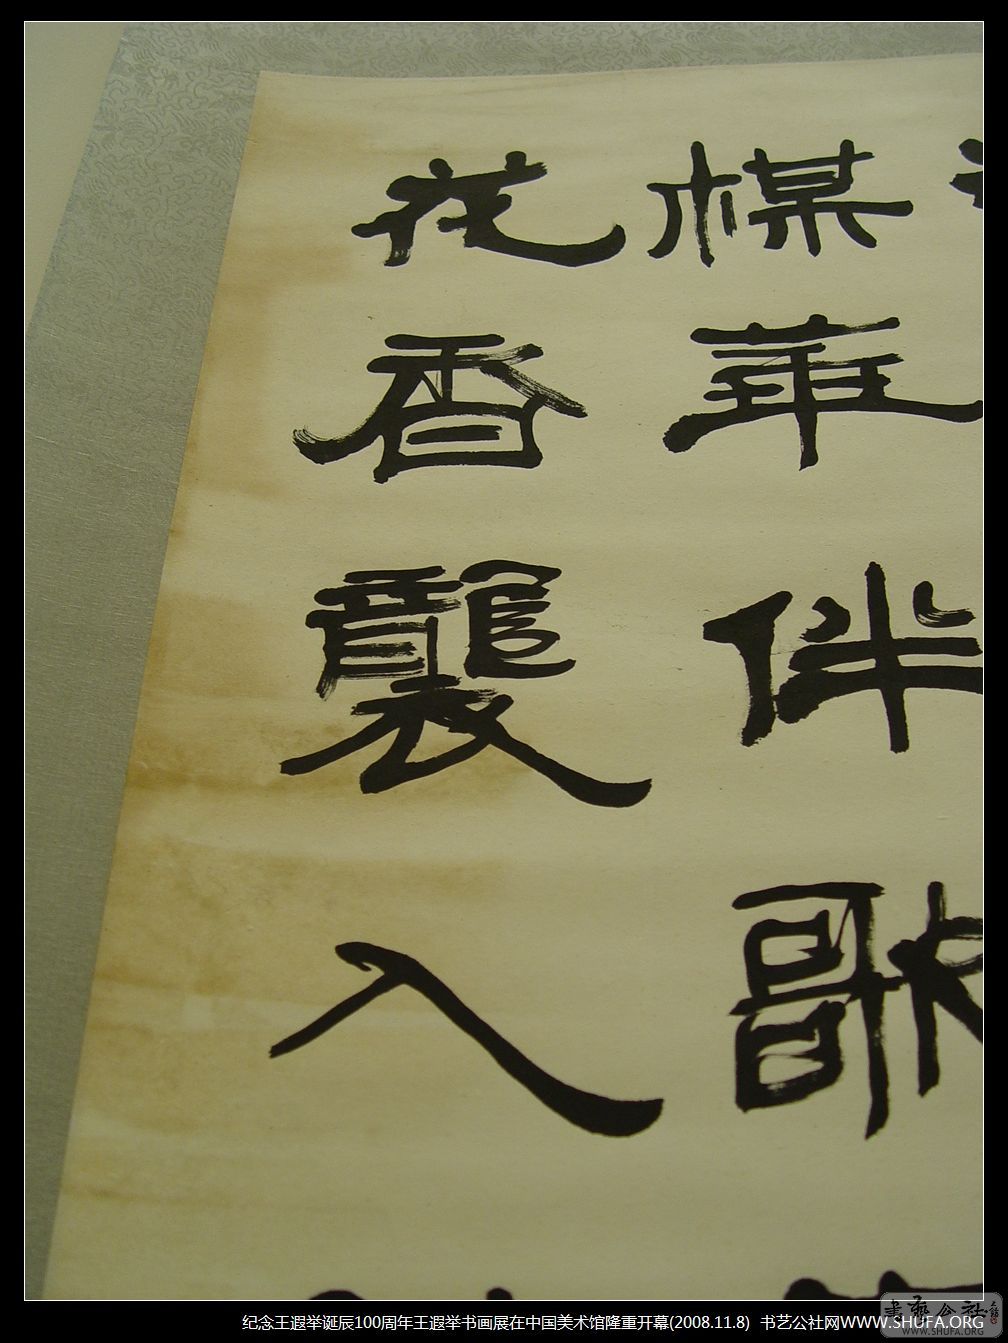 楳華伴歌
花香襲入
纪念王遐举诞辰100周年王遐举书画展在中国美术馆隆重开幕(2008.11.8) 书艺公社网WWW.SHUFA.ORG
書藝公社
WWW.SHUFA.ORG